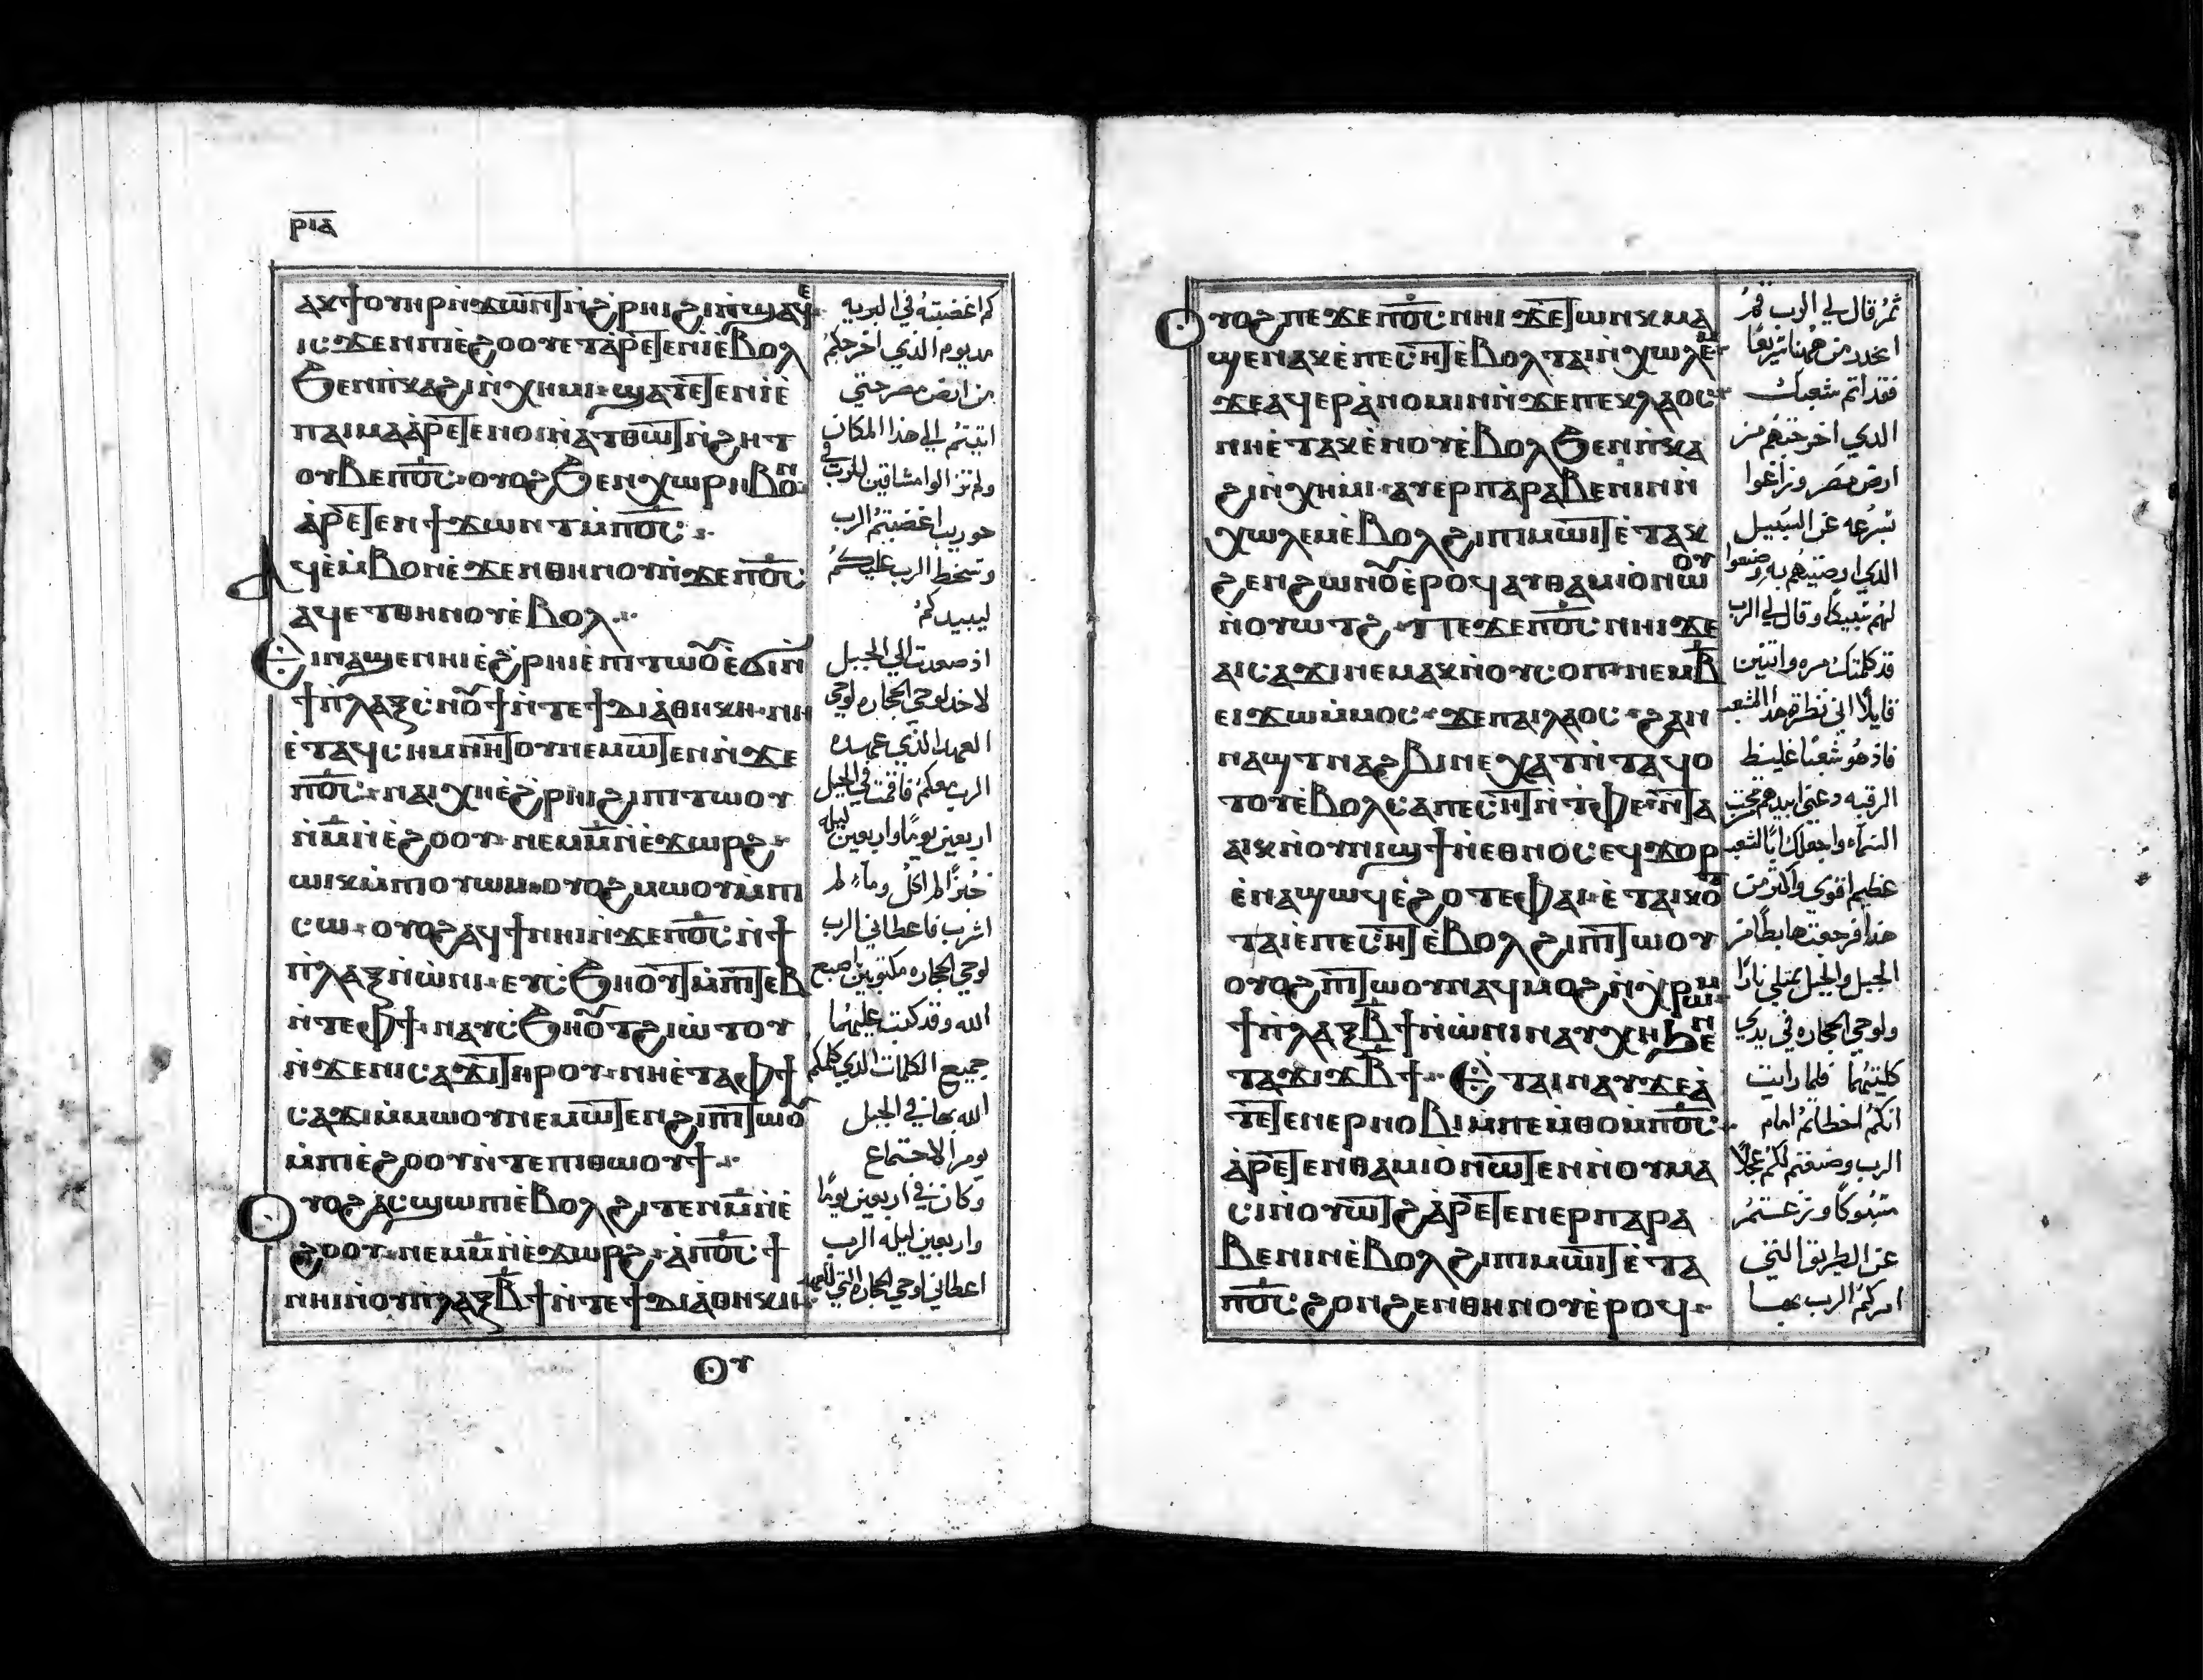 ⲣⲓⲁ
ⲁⲕϯⲟⲩⲏⲣⲛ̀ϫⲱⲛⲧⲛ̀ϩ̀ⲣⲏⲓϩⲓⲛ̀ϣⲁϥⲉ
ⲓⲥ:ϫⲉⲛⲡⲓⲉ̀ϩⲟⲟⲩⲉⲧⲁⲣⲉⲧⲉⲛⲓⲉ̀ⲃⲟⲗ
ϧⲉⲛⲡ̀ⲕⲁϩⲓⲛ̀ⲭⲏⲙⲓ·ϣⲁⲧⲉⲧⲉⲛⲓⲉ̀
ⲡⲁⲓⲙⲁⲁ̀ⲣⲉⲧⲉⲛⲟⲓⲛ̀ⲁⲧⲑⲱⲧⲛ̀ϩⲏⲧ
ⲟⲩⲃⲉⲡⲟ̅ⲥ̅·ⲟⲩⲟϩϧⲉⲛⲭⲱⲣⲏⲃⲟⲛ
ⲁ̀ⲣⲉⲧⲉⲛϯϫⲱⲛⲧⲙ̀ⲡⲟ̅ⲥ̅·
ⲁϥⲉ̀ⲙⲃⲟⲛⲉ̀ϫⲉⲛⲑⲏⲛⲟⲩⲛ̀ϫⲉⲡⲟ̅ⲥ̅
ⲁϥⲉⲧⲑⲏⲛⲟⲩⲉ̀ⲃⲟⲗ·
ⲉⲓⲛⲁϣⲉⲛⲏⲓⲉ̀ϩ̀ⲣⲏⲓⲉ̀ⲡⲓⲧⲱⲟⲩⲉ̀ϭⲓⲛ̀
ϯⲡ̀ⲗⲁⲝⲥ̀ⲛⲟⲩϯⲛ̀ⲧⲉϯⲇⲓⲁ̀ⲑⲏⲕⲏ·ⲛⲏ
ⲉ̀ⲧⲁϥⲥⲏⲙⲛⲏⲧⲟⲩⲛⲉⲙⲱⲧⲉⲛⲛ̀ϫⲉ
ⲡⲟ̅ⲥ̅·ⲛⲁⲓⲭⲏⲉ̀ϩ̀ⲣⲏⲓϩⲓⲡⲓⲧⲱⲟⲩ
ⲛ̀ⲙ̅ⲛ̀ⲉ̀ϩⲟⲟⲩ·ⲛⲉⲙⲙ̅ⲛ̀ⲉ̀ϫⲱⲣϩ·
ⲱⲓⲕⲙ̀ⲡⲓⲟⲩⲱⲙ·ⲟⲩⲟϩⲙⲱⲟⲩⲙ̀ⲡⲓ
ⲥⲱ·ⲟⲩⲟϩⲁϥϯⲛⲏⲓⲛ̀ϫⲉⲡⲟ̅ⲥ̅ⲛ̀ϯ
ⲡ̀ⲗⲁⲝⲛ̀ⲱ̀ⲛⲓ·ⲉⲩⲥ̀ϧⲏⲟⲩⲧⲙ̀ⲡⲧⲏⲃ
ⲛ̀ⲧⲉⲫϯ·ⲛⲁⲩⲥ̀ϧⲏⲟⲩⲧϩⲓⲱ̀ⲧⲟⲩ
ⲛ̀ϫⲉⲛⲓⲥⲁϫⲓⲧⲏⲣⲟⲩ·ⲛⲏⲉ̀ⲧⲁⲫϯ
ⲥⲁϫⲓⲙ̀ⲙⲱⲟⲩⲛⲉⲙⲱⲧⲉⲛϩⲓⲡⲧⲱⲟⲩ
ⲙ̀ⲡⲓⲉ̀ϩⲟⲟⲩⲛ̀ⲧⲉⲡⲓⲑⲱⲟⲩϯ·
ⲟⲩⲟϩⲁⲥϣⲱⲡⲓⲉ̀ⲃⲟⲗϩⲓⲧⲉⲛⲙ̅ⲛ̀ⲉ̀
ϩⲟⲟⲩ·ⲛⲉⲙⲙ̅ⲛ̀ⲉ̀ϫⲱⲣϩ·ⲁ̀ⲡⲟ̅ⲥ̅ϯ
ⲛⲏⲓⲛ̀ⲟⲩⲡ̀ⲗⲁⲝⲃ̅ϯⲛ̀ⲧⲉϯⲇⲓⲁ̀ⲑⲏⲕⲏ
كم اغضبته في البريه
مد يوم الذي اخرجكم
من ارض مصر حتي
اتيتم الي هذا المكان
ولم تزالوا مشاقين للرب في
حوريب اغضبتم الرب
وسخط الرب عليكم
ليبيدكم
اذ صعدت الي الجبل
لاخذ لوحي الحجاره لوحي
العهد الذي عهده
الرب معكم فاقمت في الجبل
اربعين يوما واربعين ليله
خبزا لم اكل وماء لم
اشرب فاعطاني الرب
لوحي الحجاره مكتوبين باصبع
الله وقد كتبت عليهما
جميع الكلمات الذي كلمكم
الله بها في الجبل
يوم الاجتماع
وكان في اربعين يوما
واربعين ليله الرب
اعطاني لوحي الحجاره التي للعهد
ⲟⲩ
ⲟⲩⲟϩⲡⲉϫⲉⲡⲟ̅ⲥ̅ⲛⲏⲓϫⲉⲧⲱⲛⲕⲙⲁ
ϣⲉⲛⲁⲕⲉ̀ⲡⲉⲥⲏⲧⲉ̀ⲃⲟⲗⲧⲁⲓⲛ̀ⲭⲱⲗⲉⲙ
ϫⲉⲁϥⲉⲣⲁ̀ⲛⲟⲙⲓⲛ̀ϫⲉⲡⲉⲕⲗⲁⲟⲥ
ⲛⲏⲉ̀ⲧⲁⲕⲉ̀ⲛⲟⲩⲉ̀ⲃⲟⲗϧⲉⲛⲡ̀ⲕⲁ
ϩⲓⲛ̀ⲭⲏⲙⲓ·ⲁⲩⲉⲣⲡⲁⲣⲁⲃⲉⲛⲓⲛⲛ̀
ⲭⲱⲗⲉⲙⲉ̀ⲃⲟⲗϩⲓⲡⲓⲙⲱⲓⲧⲉ̀ⲧⲁⲕ
ϩⲉⲛϩⲱⲛⲟⲩⲉ̀ⲣⲟϥⲁⲩⲑⲁⲙⲓⲟ̀ⲛⲱⲟⲩ
ⲛ̀ⲟⲩⲱⲧϩ·ⲡⲉϫⲉⲡⲟ̅ⲥ̅ⲛⲏⲓϫⲉ
ⲁⲓⲥⲁϫⲓⲛⲉⲙⲁⲕⲛ̀ⲟⲩⲥⲟⲡ·ⲛⲉⲙⲃ̅
ⲉⲓϫⲱⲙ̀ⲙⲟⲥ·ϫⲉⲡⲁⲓⲗⲁⲟⲥ·ϩⲁⲛ
ⲛⲁϣⲧⲛⲁϩⲃⲓⲛⲉⲭⲁⲧⲛ̀ⲧⲁϥⲟ
ⲧⲟⲩⲉ̀ⲃⲟⲗⲥⲁⲡⲉⲥⲏⲧⲛ̀ⲧ̀ⲫⲉ·ⲛ̀ⲧⲁ
ⲁⲓⲕⲛ̀ⲟⲩⲛⲓϣϯⲛ̀ⲉⲑⲛⲟⲥⲉϥϫⲟⲣ
ⲉ̀ⲛⲁϣⲱϥⲉ̀ϩⲟⲧⲉⲫⲁⲓ·ⲉ̀ⲧⲁⲓⲕⲟ
ⲧⲁⲓⲉ̀ⲡⲉⲥⲏⲧⲉ̀ⲃⲟⲗϩⲓⲡⲧⲱⲟⲩ
ⲟⲩⲟϩⲡⲧⲱⲟⲩⲛⲁϥⲙⲟϩⲛ̀ⲭⲣⲱⲙ
ϯⲡ̀ⲗⲁⲝⲃ̅ϯⲛ̀ⲱ̀ⲛⲓⲛⲁⲩⲭⲏϧⲉⲛ
ⲧⲁϫⲓϫⲃ̅ϯ·ⲉⲧⲁⲓⲛⲁⲩϫⲉⲁ̀
ⲧⲉⲧⲉⲛⲉⲣⲛⲟⲃⲓⲙ̀ⲡⲉⲙ̀ⲑⲟⲙ̀ⲡⲟ̅ⲥ̅
ⲁ̀ⲣⲉⲧⲉⲛⲑⲁⲙⲓⲟ̀ⲛⲱⲧⲉⲛⲛ̀ⲟⲩⲙⲁ
ⲥⲓⲛ̀ⲟⲩⲱⲧϩⲁ̀ⲣⲉⲧⲉⲛⲉⲣⲡⲁⲣⲁ
ⲃⲉⲛⲓⲛⲉ̀ⲃⲟⲗϩⲓⲡⲓⲙⲱⲓⲧⲉ̀ⲧⲁ
ⲡⲟ̅ⲥ̅ϩⲟⲛϩⲉⲛⲑⲏⲛⲟⲩⲉ̀ⲣⲟϥ·
ثم قال لي الرب قم
انحدر من ههنا سريعا
فقد اثم شعبك
الدي اخرجتهم من
ارض مصر وزاغوا
بسرعه عن السبيل
الدي اوصيتهم به وصنعوا
لهم سبيكا وقال لي الرب
قد كلمتك مره واتنين
قايلا اني نظرت هدا الشعب
فاذ هو شعبا غليظ
الرقبه دعني ابيدهم من تحت
السماء واجعلك ابا لشعب
عظيم اقوي واكتر من
هذا فرجعت هابطا من
الجبل والجبل يمتلي نارا
ولوحي الحجاره في يدي
كليتهما فلما رايت
انكم اخطاتم امام
الرب وصنعتم لكم عجلا
مسبوكا وزغتم
عن الطريق التي
امركم الرب بها